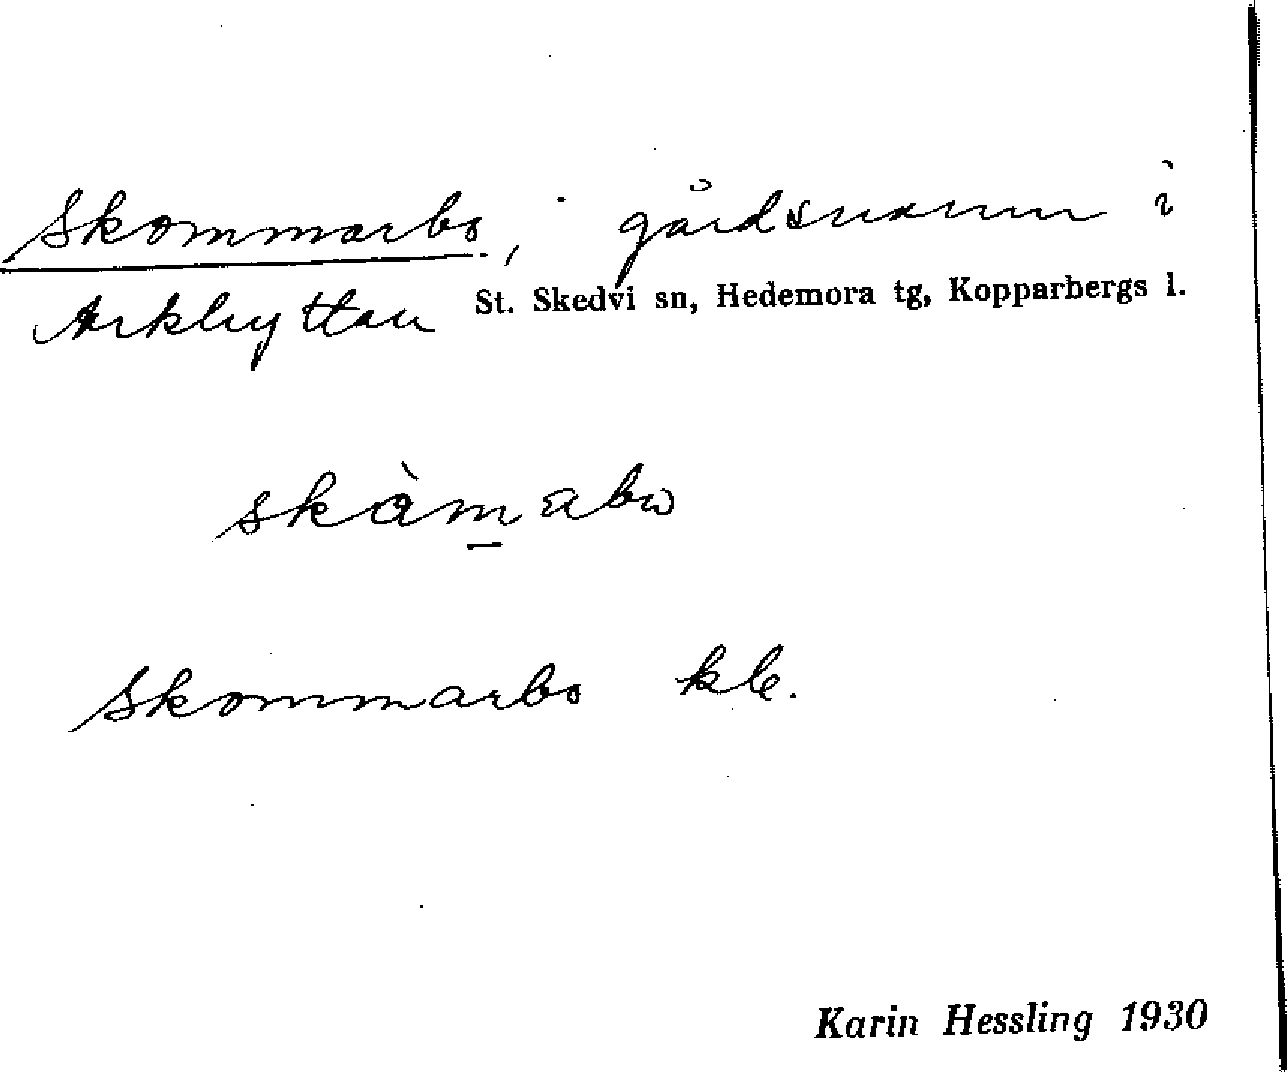 Skommarbo, gårdsnamn i
Arkhyttan St. Skedvi sn, Hedemora tg, Kopparbergs l.
skàmabω
Skommarbo kb.
Karin Hessling 1930